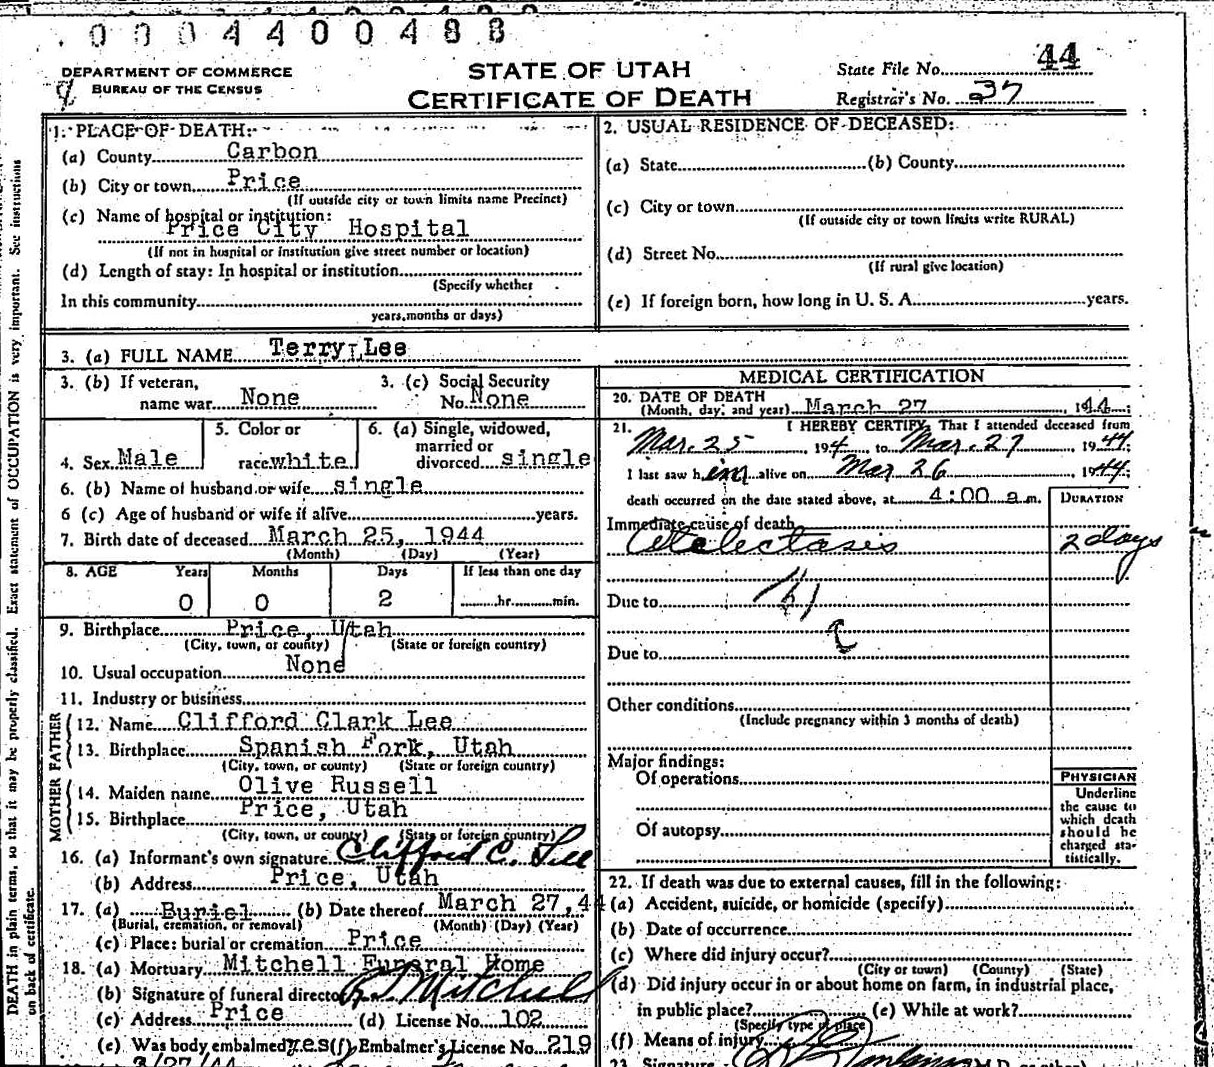 0 0 0 4 4 0 0 4 8 8
DEPARTMENT OF COMMERCE
BUREAU OF THE CENSUS
STATE OF UTAH
CERTIFICATE OF DEATH
State File No. 44
Registrar's No. 37
1. PLACE OF DEATH:
(a) County Carbon
(b) City or town Price
(If outside city or town limits name Precinct)
(c) Name of hospital or institution:
Price City Hospital
(If not in hospital or institution give street number or location)
(d) Length of stay: In hospital or institution
(Specify whether
In this community
years, months or days)
2. USUAL RESIDENCE OF DECEASED:
(a) State (b) County
(c) City or town
(If outside city or town limits write RURAL)
(d) Street No.
(If rural give location)
(e) If foreign born, how long in U. S. A. years.
3. (a) FULL NAME Terry Lee
3. (b) If veteran,
name war None
3. (c) Social Security
No. None
4. Sex Male
5. Color or
race white
6. (a) Single, widowed,
married or
divorced single
6. (b) Name of husband or wife single
6 (c) Age of husband or wife if alive years.
7. Birth date of deceased March 25, 1944
(Month) (Day) (Year)
8. AGE Years Months Days If less than one day
0 0 2 hr. min.
9. Birthplace Price, Utah
(City, town, or county) (State or foreign country)
10. Usual occupation None
11. Industry or business
FATHER
12. Name Clifford Clark Lee
13. Birthplace Spanish Fork, Utah
(City, town, or county) (State or foreign country)
MOTHER
14. Maiden name Olive Russell
15. Birthplace Price, Utah
(City, town, or county) (State or foreign country)
16. (a) Informant's own signature Clifford C. Lee
(b) Address Price, Utah
17. (a) Buriel (b) Date thereof March 27, 44
(Burial, cremation, or removal) (Month) (Day) (Year)
(c) Place: burial or cremation Price
18. (a) Mortuary Mitchell Funeral Home
(b) Signature of funeral director Mitchell
(c) Address Price (d) License No. 102
(e) Was body embalmed yes (f) Embalmer's License No. 219
3/27/44
MEDICAL CERTIFICATION
20. DATE OF DEATH
(Month, day, and year) March 27, 1944
21. I HEREBY CERTIFY, That I attended deceased from
Mar. 25, 194 to Mar. 27 1944
I last saw him alive on Mar 26 1944
death occurred on the date stated above, at 4:00 a.m.
DURATION
Immediate cause of death
Atelectasis 2 days
Due to 161
Due to
Other conditions
(Include pregnancy within 3 months of death)
Major findings:
Of operations
Of autopsy
PHYSICIAN
Underline
the cause to
which death
should be
charged sta-
tistically.
22. If death was due to external causes, fill in the following:
(a) Accident, suicide, or homicide (specify)
(b) Date of occurrence
(c) Where did injury occur?
(City or town) (County) (State)
(d) Did injury occur in or about home on farm, in industrial place,
in public place? (e) While at work?
(Specify type of place)
(f) Means of injury
23. Signature M.D. or other)
DEATH in plain terms, so that it may be properly classified. Exact statement of OCCUPATION is very important. See instructions
on back of certificate.